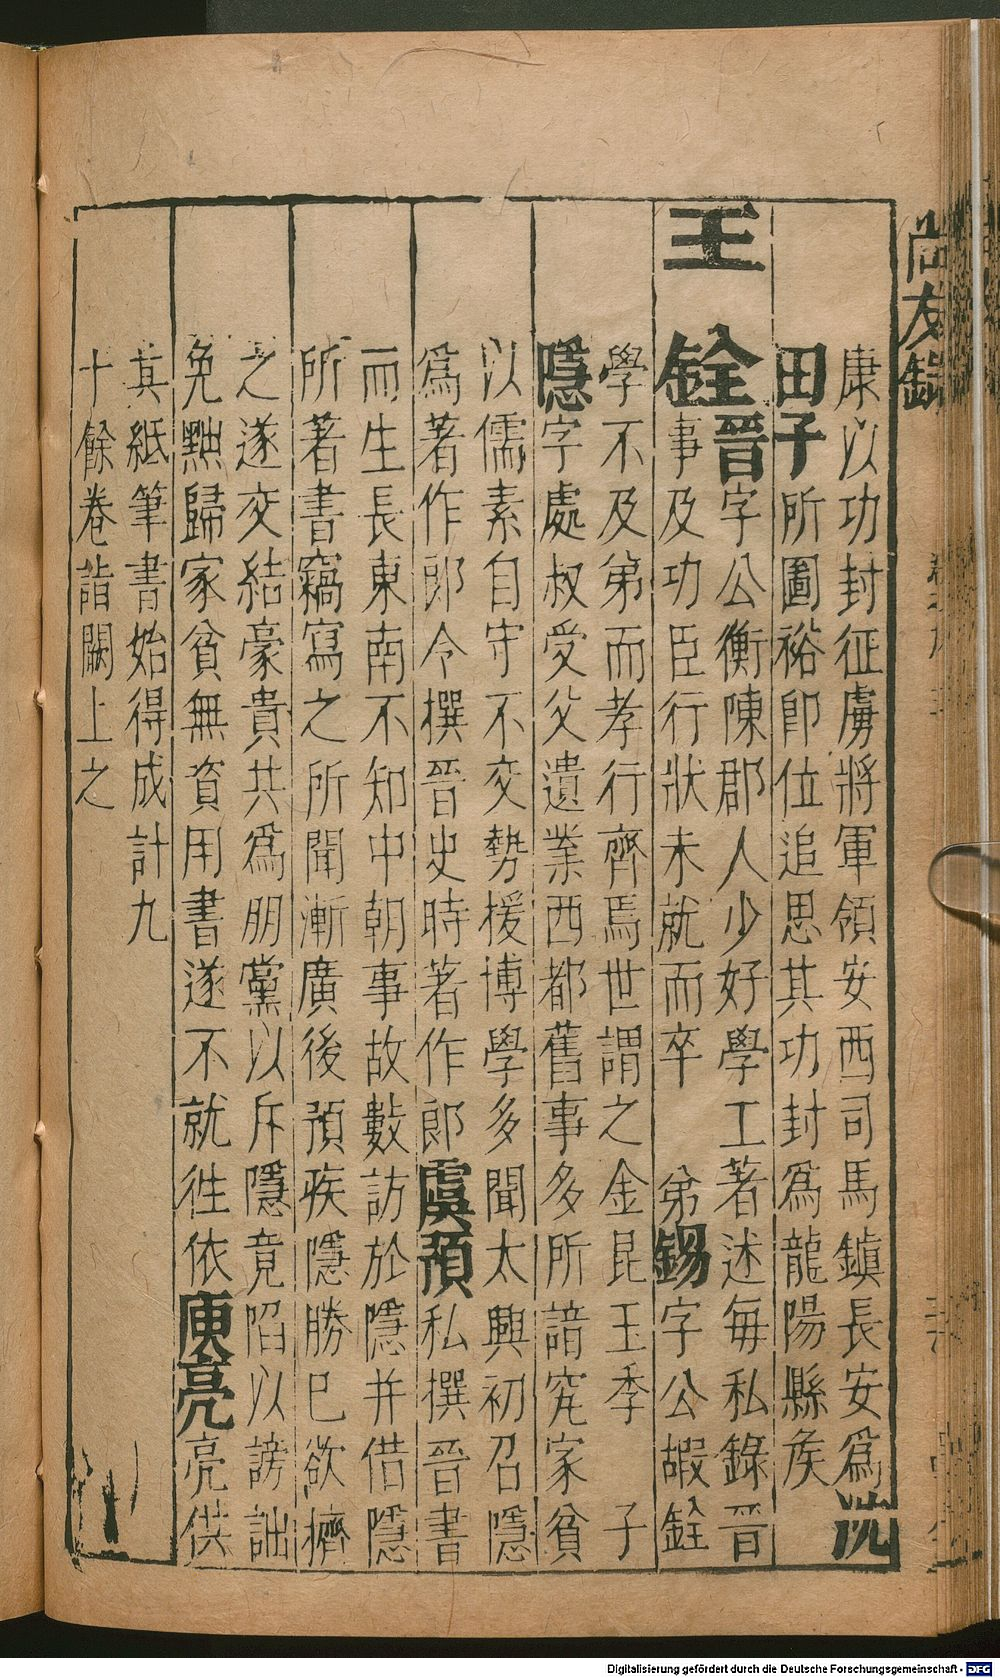 尚友錄
康以功封征虜將軍領安西司馬鎮長安爲沈
田子所圖裕卽位追思其功封爲龍陽縣矦
王銓晉字公衡陳郡人少好學工著述每私錄晉
事及功臣行狀未就而卒 弟錫字公嘏銓
學不及弟而孝行齊焉世謂之金昆玉季 子
隱字處叔受父遺業西都舊事多所諳究家貧
以儒素自守不交勢援博學多聞太興初召隱
爲著作郎令撰晉史時著作郎虞預私撰晉書
而生長東南不知中朝事故數訪於隱并借隱
所著書竊寫之所聞漸廣後預疾隱勝己欲擠
之遂交結豪貴共爲朋黨以斥隱竟陷以謗詘
免黜歸家貧無資用書遂不就徃依庾亮亮供
其紙筆書始得成計九
十餘卷詣闕上之
Digitalisierung gefördert durch die Deutsche Forschungsgemeinschaft - DFG